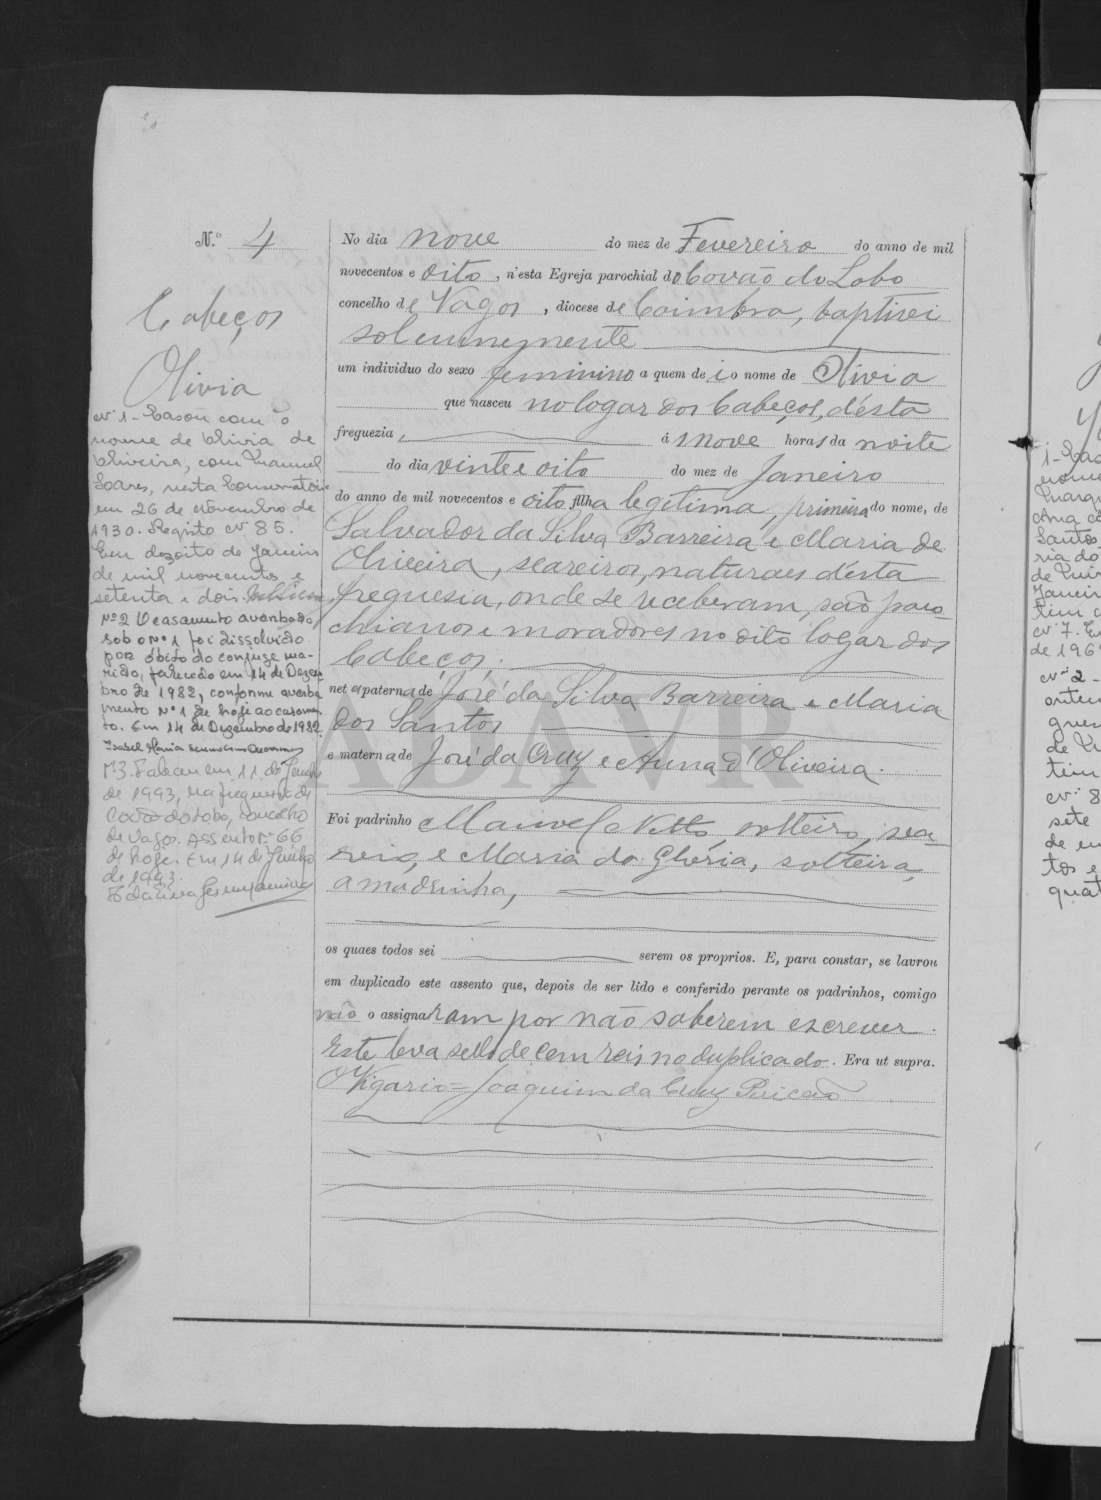 N.º 4
Cabeços
Olivia
Nº 1 - Casou com o
nome de Olivia de
Oliveira, com Manuel
Soares, nesta Conservatória
em 26 de Novembro de
1930. Registo Nº 85.
Em dezoito de Janeiro
de mil novecentos e
setenta e dois.
Nº 2 O casamento averbado
sob o nº 1 foi dissolvido
por óbito do conjuge ma-
rido, falecido em 14 de Dezem
bro de 1982, conforme averba
mento nº 1 de hoje ao casamen
to. Em 14 de Dezembro de 1982
Isabel Maria
Nº 3. Faleceu em 11 de Junho
de 1993, na freguesia de
Covão do Lobo, concelho
de Vagos. Assento nº 66
de hoje. Em 14 de Junho
de 1993.
No dia nove do mez de Fevereiro do anno de mil
novecentos e oito, n'esta Egreja parochial do Covão do Lobo
concelho de Vagos, diocese de Coimbra, baptisei
solennemente
um individuo do sexo feminino a quem dei o nome de Olivia
que nasceu no logar dos Cabeços, d'esta
freguezia, ás nove horas da noite
do dia vinte e oito do mez de Janeiro
do anno de mil novecentos e oito filha legitima, primeira do nome, de
Salvador da Silva Barreira e Maria de
Oliveira, seareiros, naturaes d'esta
freguesia, onde se receberam, são paro-
chianos e moradores no dito logar dos
Cabeços;
neta paterna de José da Silva Barreira e Maria
dos Santos
e materna de José da Cruz e Anna d'Oliveira.
Foi padrinho Manuel Netto, solteiro, sea
reiro, e Maria da Gloria, solteira,
a madrinha,
os quaes todos sei serem os proprios. E, para constar, se lavrou
em duplicado este assento que, depois de ser lido e conferido perante os padrinhos, comigo
não o assignaram por não saberem escrever.
Este leva sello de cem reis no duplicado. Era ut supra.
O Vigario = Joaquim da Cruz
ADAVR